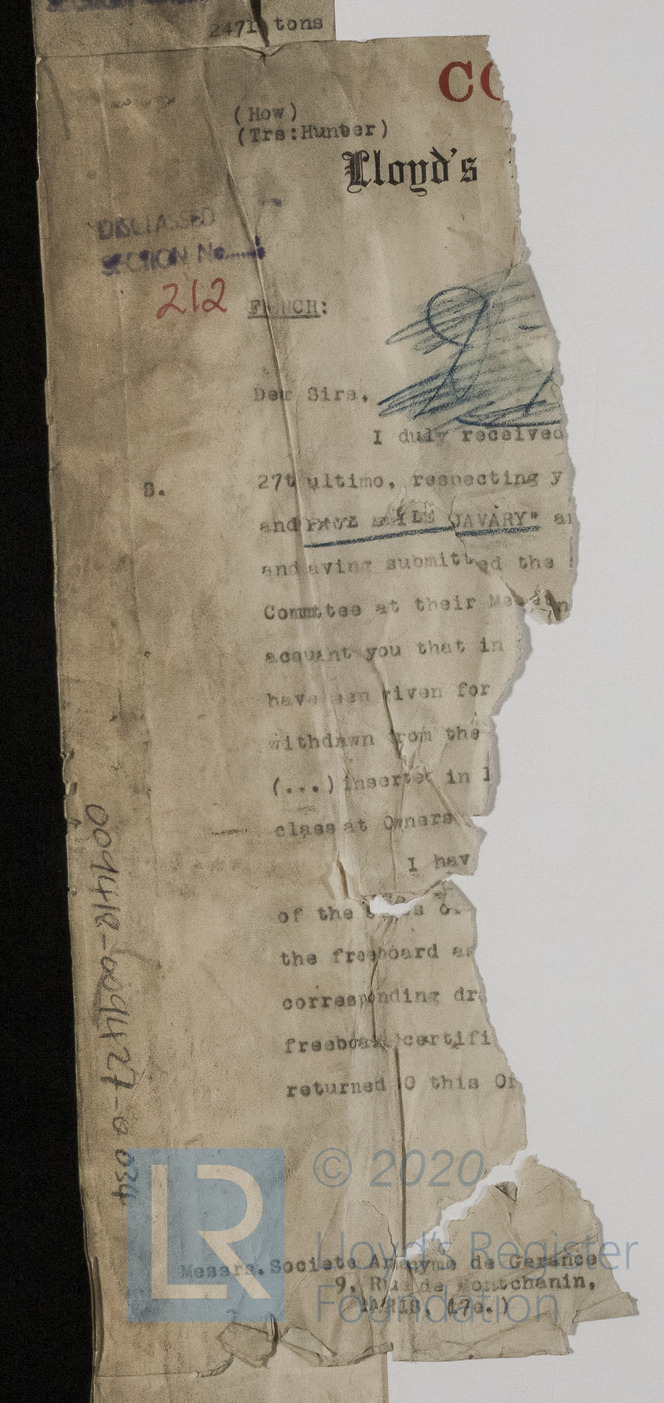 2471 tons
CO
(How)
(Trs:Hunter)
Lloyd's
DISCLASSED
SECTION No.
212
FRENCH:
Dear Sirs,
I duly received
S. 27t ultimo, respecting y
and "PAUL EMILE JAVARY" an
and aving submitted the
Commttee at their Meetin
acquant you that in
have een given for
withdawn from the
(...) inserted in l
class at Owners
I hav
of the
the freeboard as
corresponding dr
freeboa certifi
returned O this Of
009418-009427-0034
Messrs. Societe Anonyme de Gerance
9, Rue de Montchanin,
PARIS, (17e.)
LR
© 2020
Lloyd's Register
Foundation